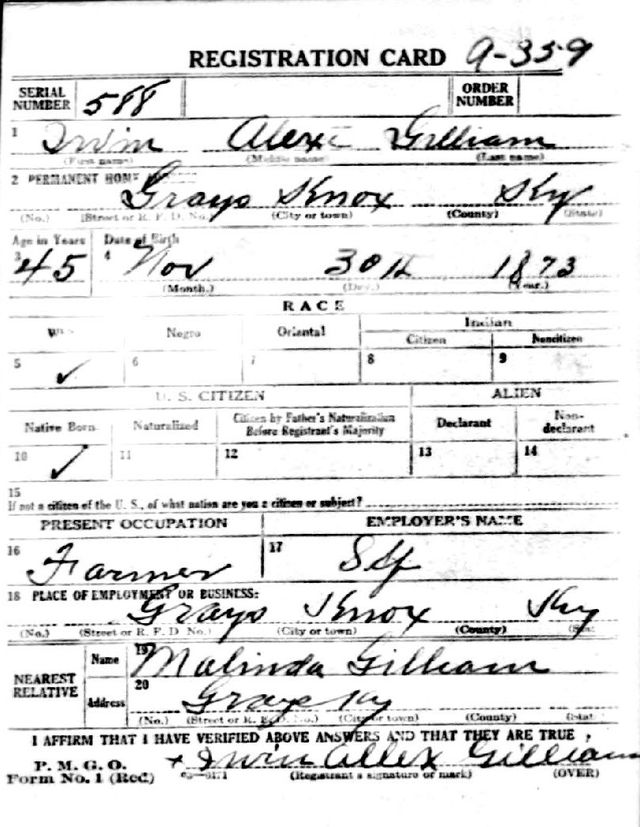 REGISTRATION CARD 9-359
SERIAL NUMBER 588 ORDER NUMBER
1 Irvin Alex Gilliam
(First name) (Middle name) (Last name)
2 PERMANENT HOME
Grays Knox Ky
(No.) (Street or R. F. D. No.) (City or town) (County) (State)
Age in Years Date of Birth
3 45 4 Nov 30th 1873
(Month.) (Day.) (Year.)
RACE
White Negro Oriental Indian
Citizen Noncitizen
5 ✓ 6 7 8 9
U. S. CITIZEN ALIEN
Native Born Naturalized Citizen by Father's Naturalization Before Registrant's Majority Declarant Non-declarant
10 ✓ 11 12 13 14
15
If not a citizen of the U. S., of what nation are you a citizen or subject?
PRESENT OCCUPATION EMPLOYER'S NAME
16 Farmer 17 Self
18 PLACE OF EMPLOYMENT OR BUSINESS:
Grays Knox Ky
(No.) (Street or R. F. D. No.) (City or town) (County) (State)
NEAREST RELATIVE Name 19 Malinda Gilliam
Address 20 Grays Ky
(No.) (Street or R. F. D. No.) (City or town) (County) (State)
I AFFIRM THAT I HAVE VERIFIED ABOVE ANSWERS AND THAT THEY ARE TRUE
P. M. G. O.
Form No. 1 (Red) + Irvin Allex Gilliam
(Registrant's signature or mark) (OVER)